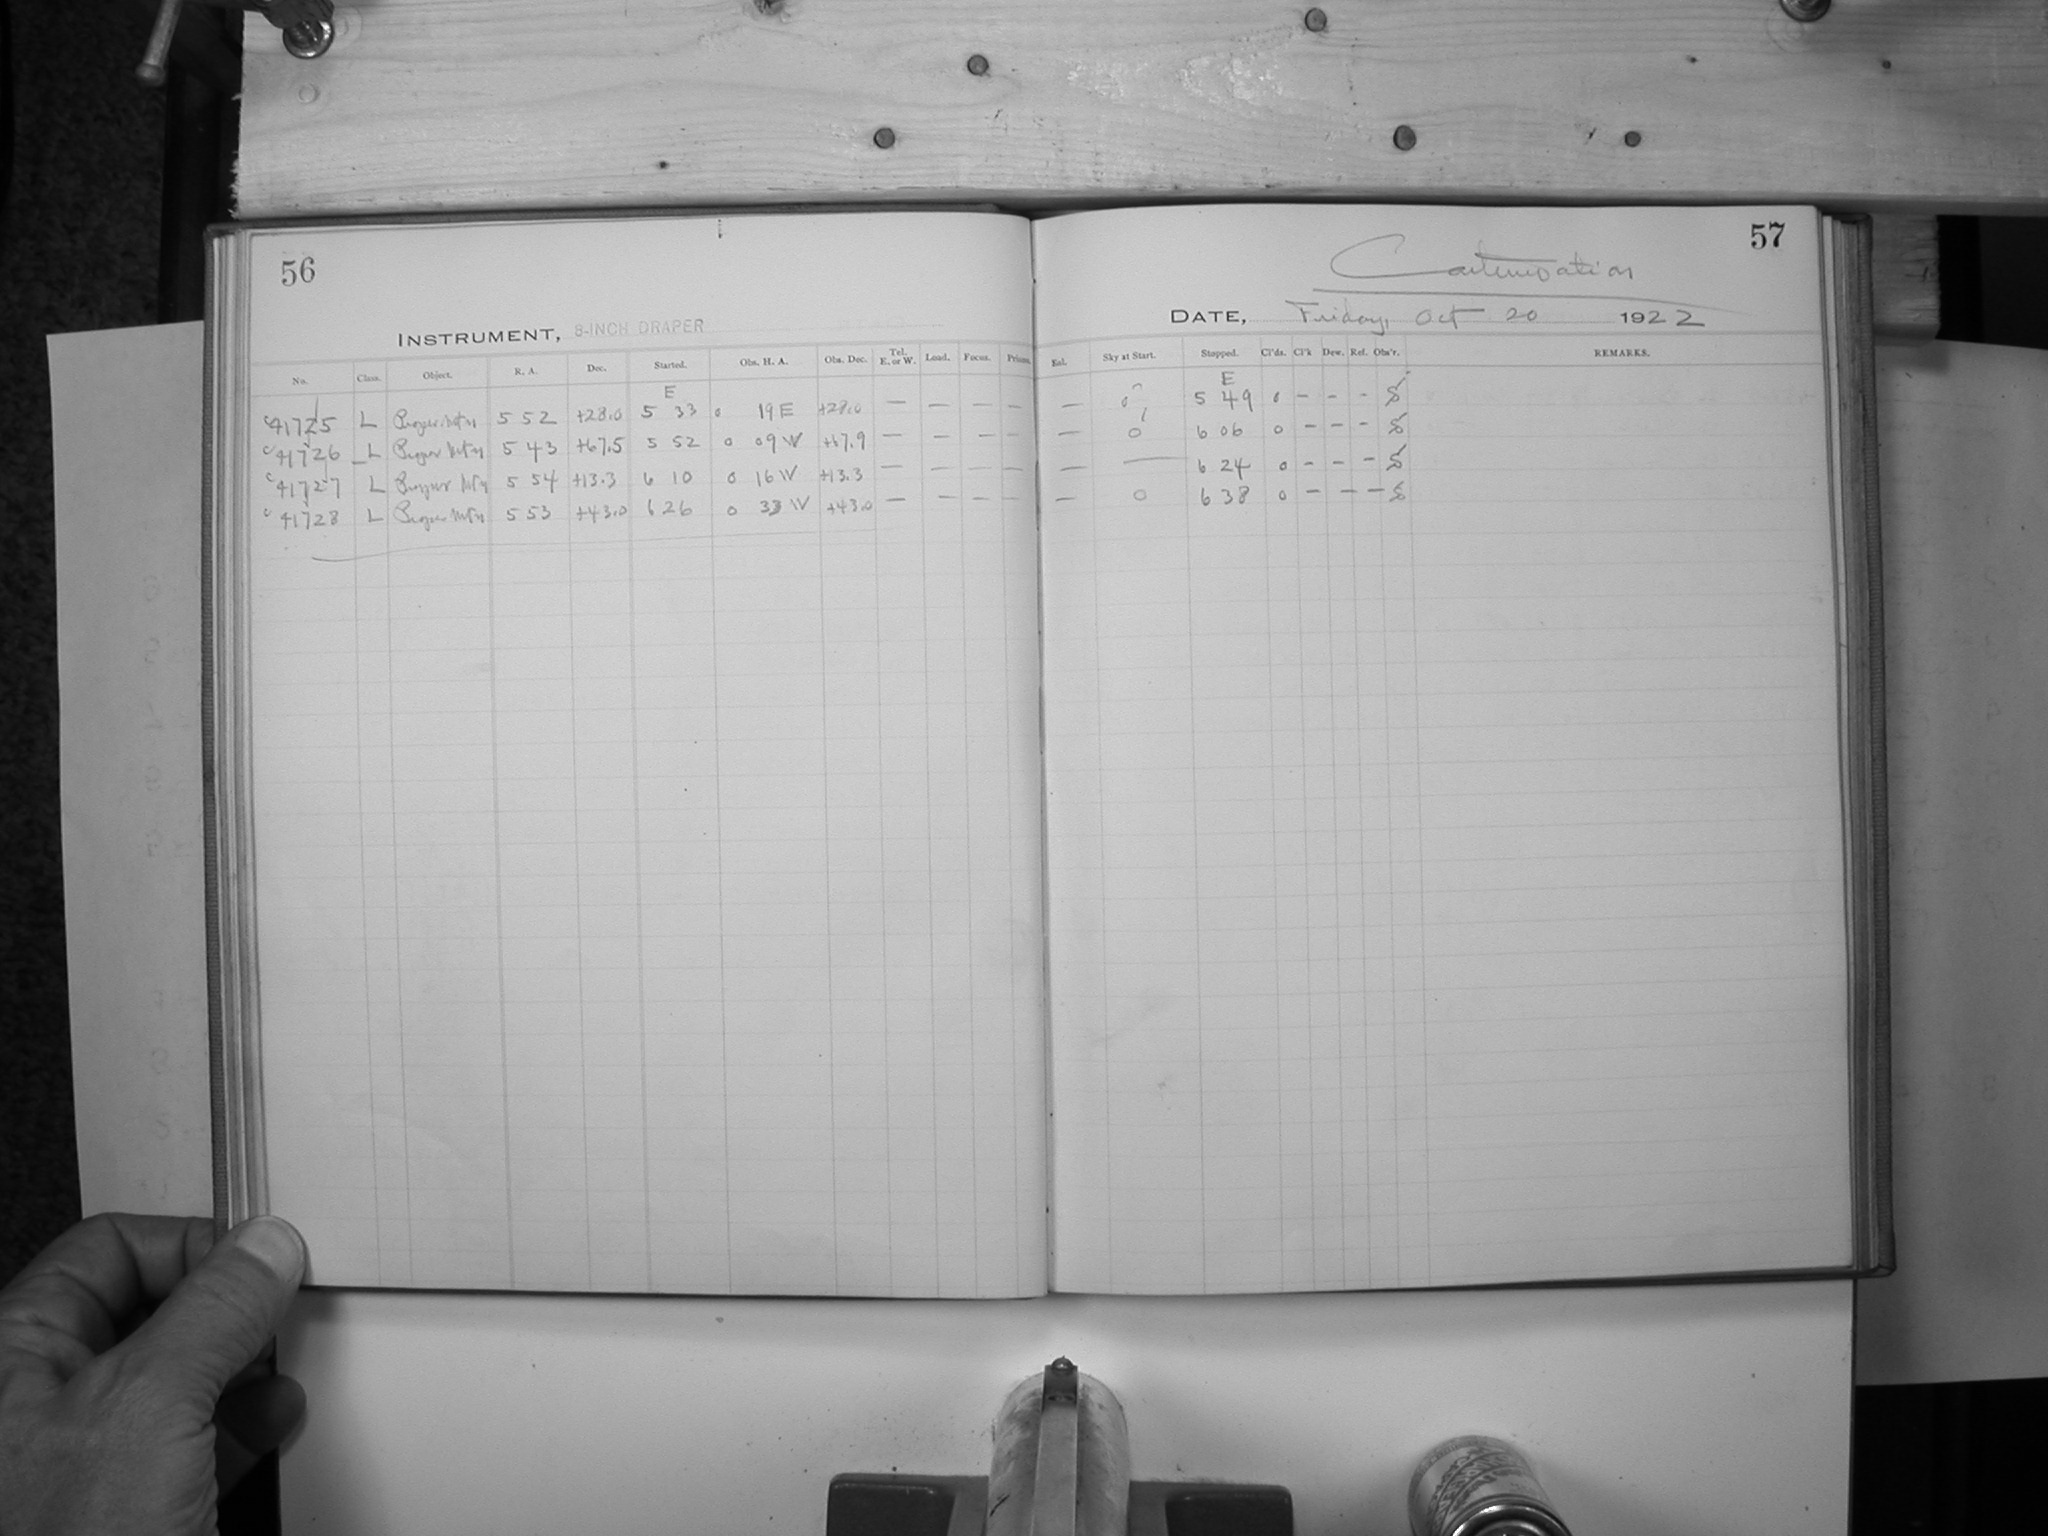 56
INSTRUMENT, 8-INCH DRAPER
No. Class. Object. R. A. Dec. Started. Obs. H. A. Obs. Dec. Tel. E. or W. Load. Focus. Prism.
E
c 41725 L Proper Mtn 5 52 +28.0 5 33 0 19 E +28.0 — — — —
c 41726 L Proper Mtn 5 43 +67.5 5 52 0 09 W +67.9 — — — —
c 41727 L Proper Mtn 5 54 +13.3 6 10 0 16 W +13.3 — — — —
c 41728 L Proper Mtn 5 53 +43.0 6 26 0 33 W +43.0 — — — —
57
Continuation
DATE, Friday, Oct 20 1922
Exl. Sky at Start. Stopped. Cl'ds. Cl'k Dew. Ref. Obs'r. REMARKS.
E
— 0 5 49 0 – – – S
— 0 6 06 0 – – – S
— — 6 24 0 – – – S
— 0 6 38 0 – — — S